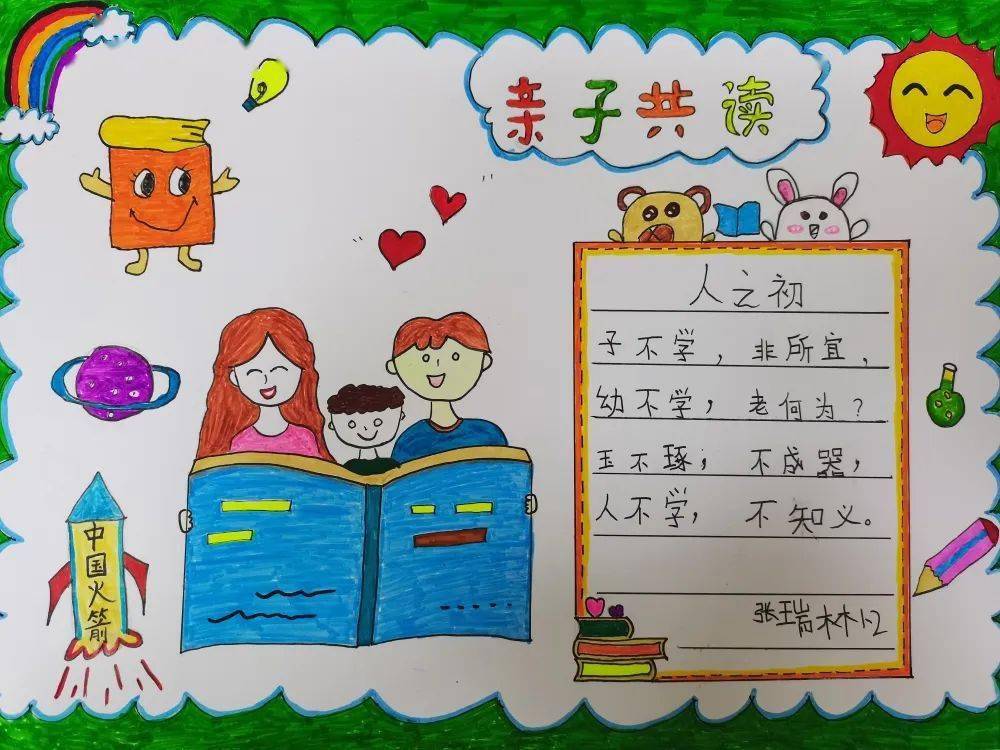 亲子共读
人之初
子不学，非所宜，
幼不学，老何为？
玉不琢；不成器，
人不学，不知义。
张瑞林
中国火箭